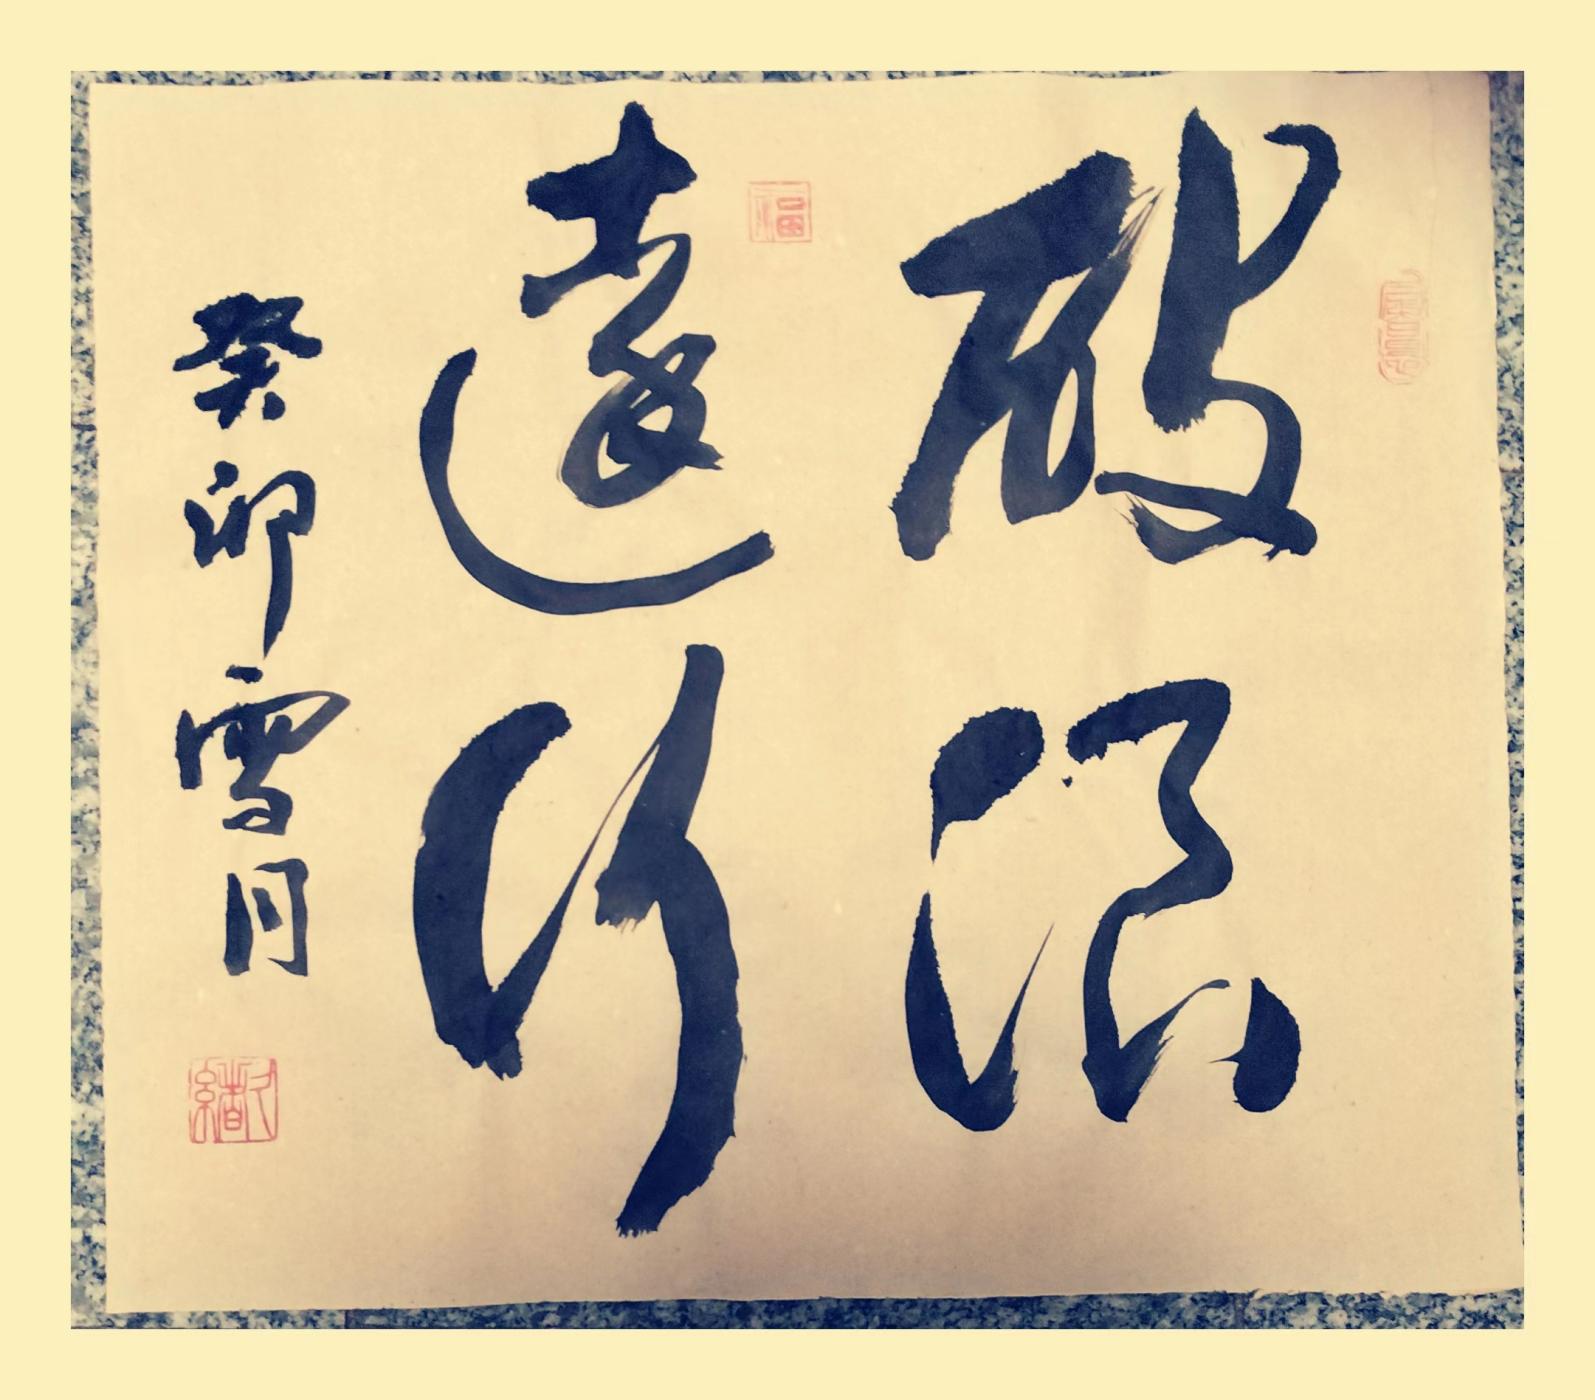 破浪
遠行
癸卯雪月
福